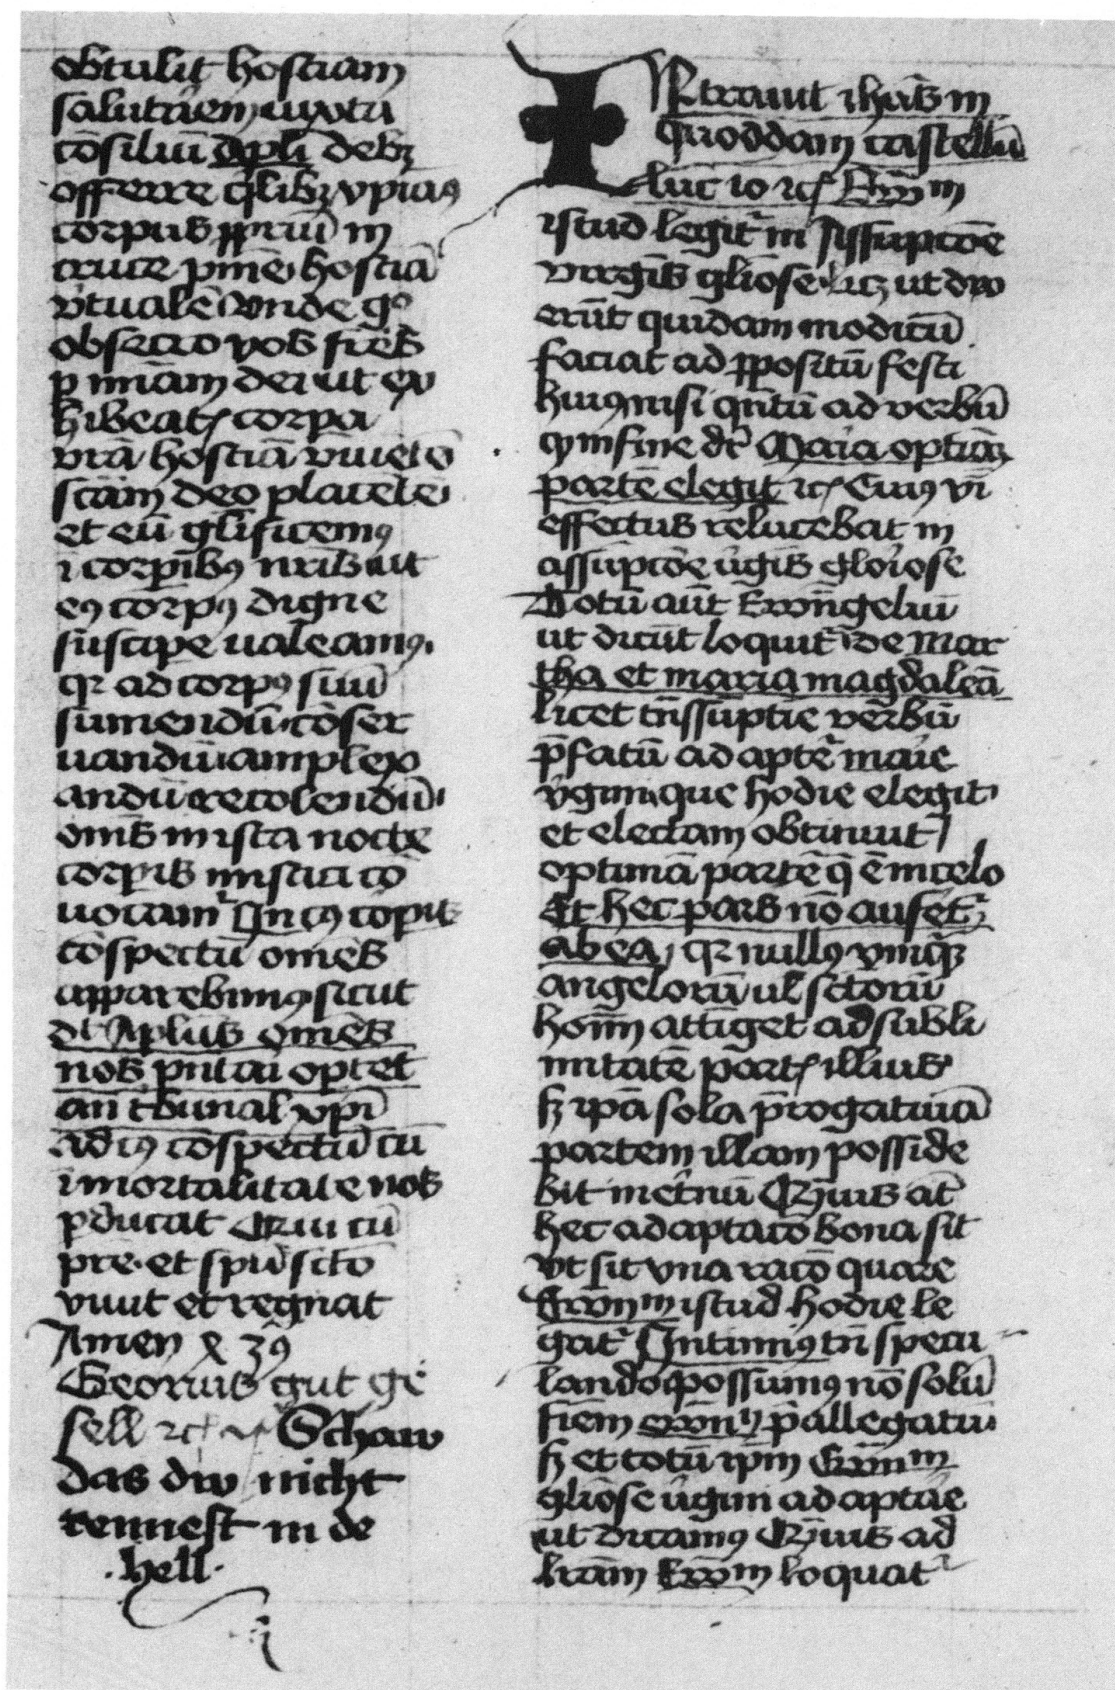 obtulit hostiam
salutrẽm iuxta
cõsiliũ Apli debꝫ
offerre qͥlibꝫ xp̃ianꝰ
corpus ꝓpriũ in
cruce pñie hostiã
Vnde gͦ
obsecro vos frẽs
ꝑ miãm dei ut ex
hibeatꝭ corpa
vrã hostiã viuẽtẽ
scãm deo placẽtẽ
et eũ glĩficemꝰ
ĩ corpĩbꝰ nrĩs ut
eꝰ corpꝰ digne
suscipe ualeamꝰ
qꝛ ad corpꝰ suũ
sumendũ cõser
uandũ amplex
andũ recolendũ
om̃s in ista nocte
corpĩs mistici cõ
uocamͬ In cꝰ
cõspectũ om̃es
apparebimꝰ sicut
dt Aplus om̃es
nos optet
an̄ tͥbunal xp̃i
ad eiꝰ cõspectũ cũ
ĩmortalitate nos
ꝑducat Qui cũ
pr̃e et spũ scto
viuit et regnat
Amen
Georius gut ge
sell ꝛcꝭ Schaw
das dw nicht
rennest in de
hell
INtrauit ihũs in
quoddam castellũ
luc 10 ꝛcꝭ Ewm
istud legitͬ in Assũpcõe
virgĩs gliõse licꝫ ut dix
erũt quidam modicũ
faciat ad ꝓpositũ festi
huiꝰ nisi qñtũ ad verbũ
qͥ in fine dr̃ Maria optimã
partẽ elegit ꝛcꝭ Cuiꝰ vi
effectus relucebat in
assũpcõe ũgĩs gloĩose
Totũ aũt Ewãngeliũ
ut dicũt loquitͬ de mar
tha et maria magdaleã
licet tñ ssũptie verbũ
p̃fatũ ad aptetͬ marie
ṽgini que hodie elegit
et electam obtinuit
optimã partẽ q̃ ẽ in celo
Et hec pars nõ aufetͬ
ab ea qꝛ nullꝰ vnqꝫ
angelorũ ul̃ sctorũ
hoĩm attĩget ad subli
mitatẽ partꝭ illius
sꝫ ip̃a sola p̃rogatiuã
partem illam posside
bit inet̃nũ Quis at̃
hec ad aptacõ bona sit
vt sit vna racõ quare
Ewm istud hodie le
gatͬ Intimiꝰ tñ specu
lando possumꝰ nõ solũ
finẽm ewñij p̃allegatũ
sꝫ et totũ ip̃m Ewm
gliõse ũgini ad aptare
ut dicamꝰ Quis ad
lrãm Ewm loquatͬ